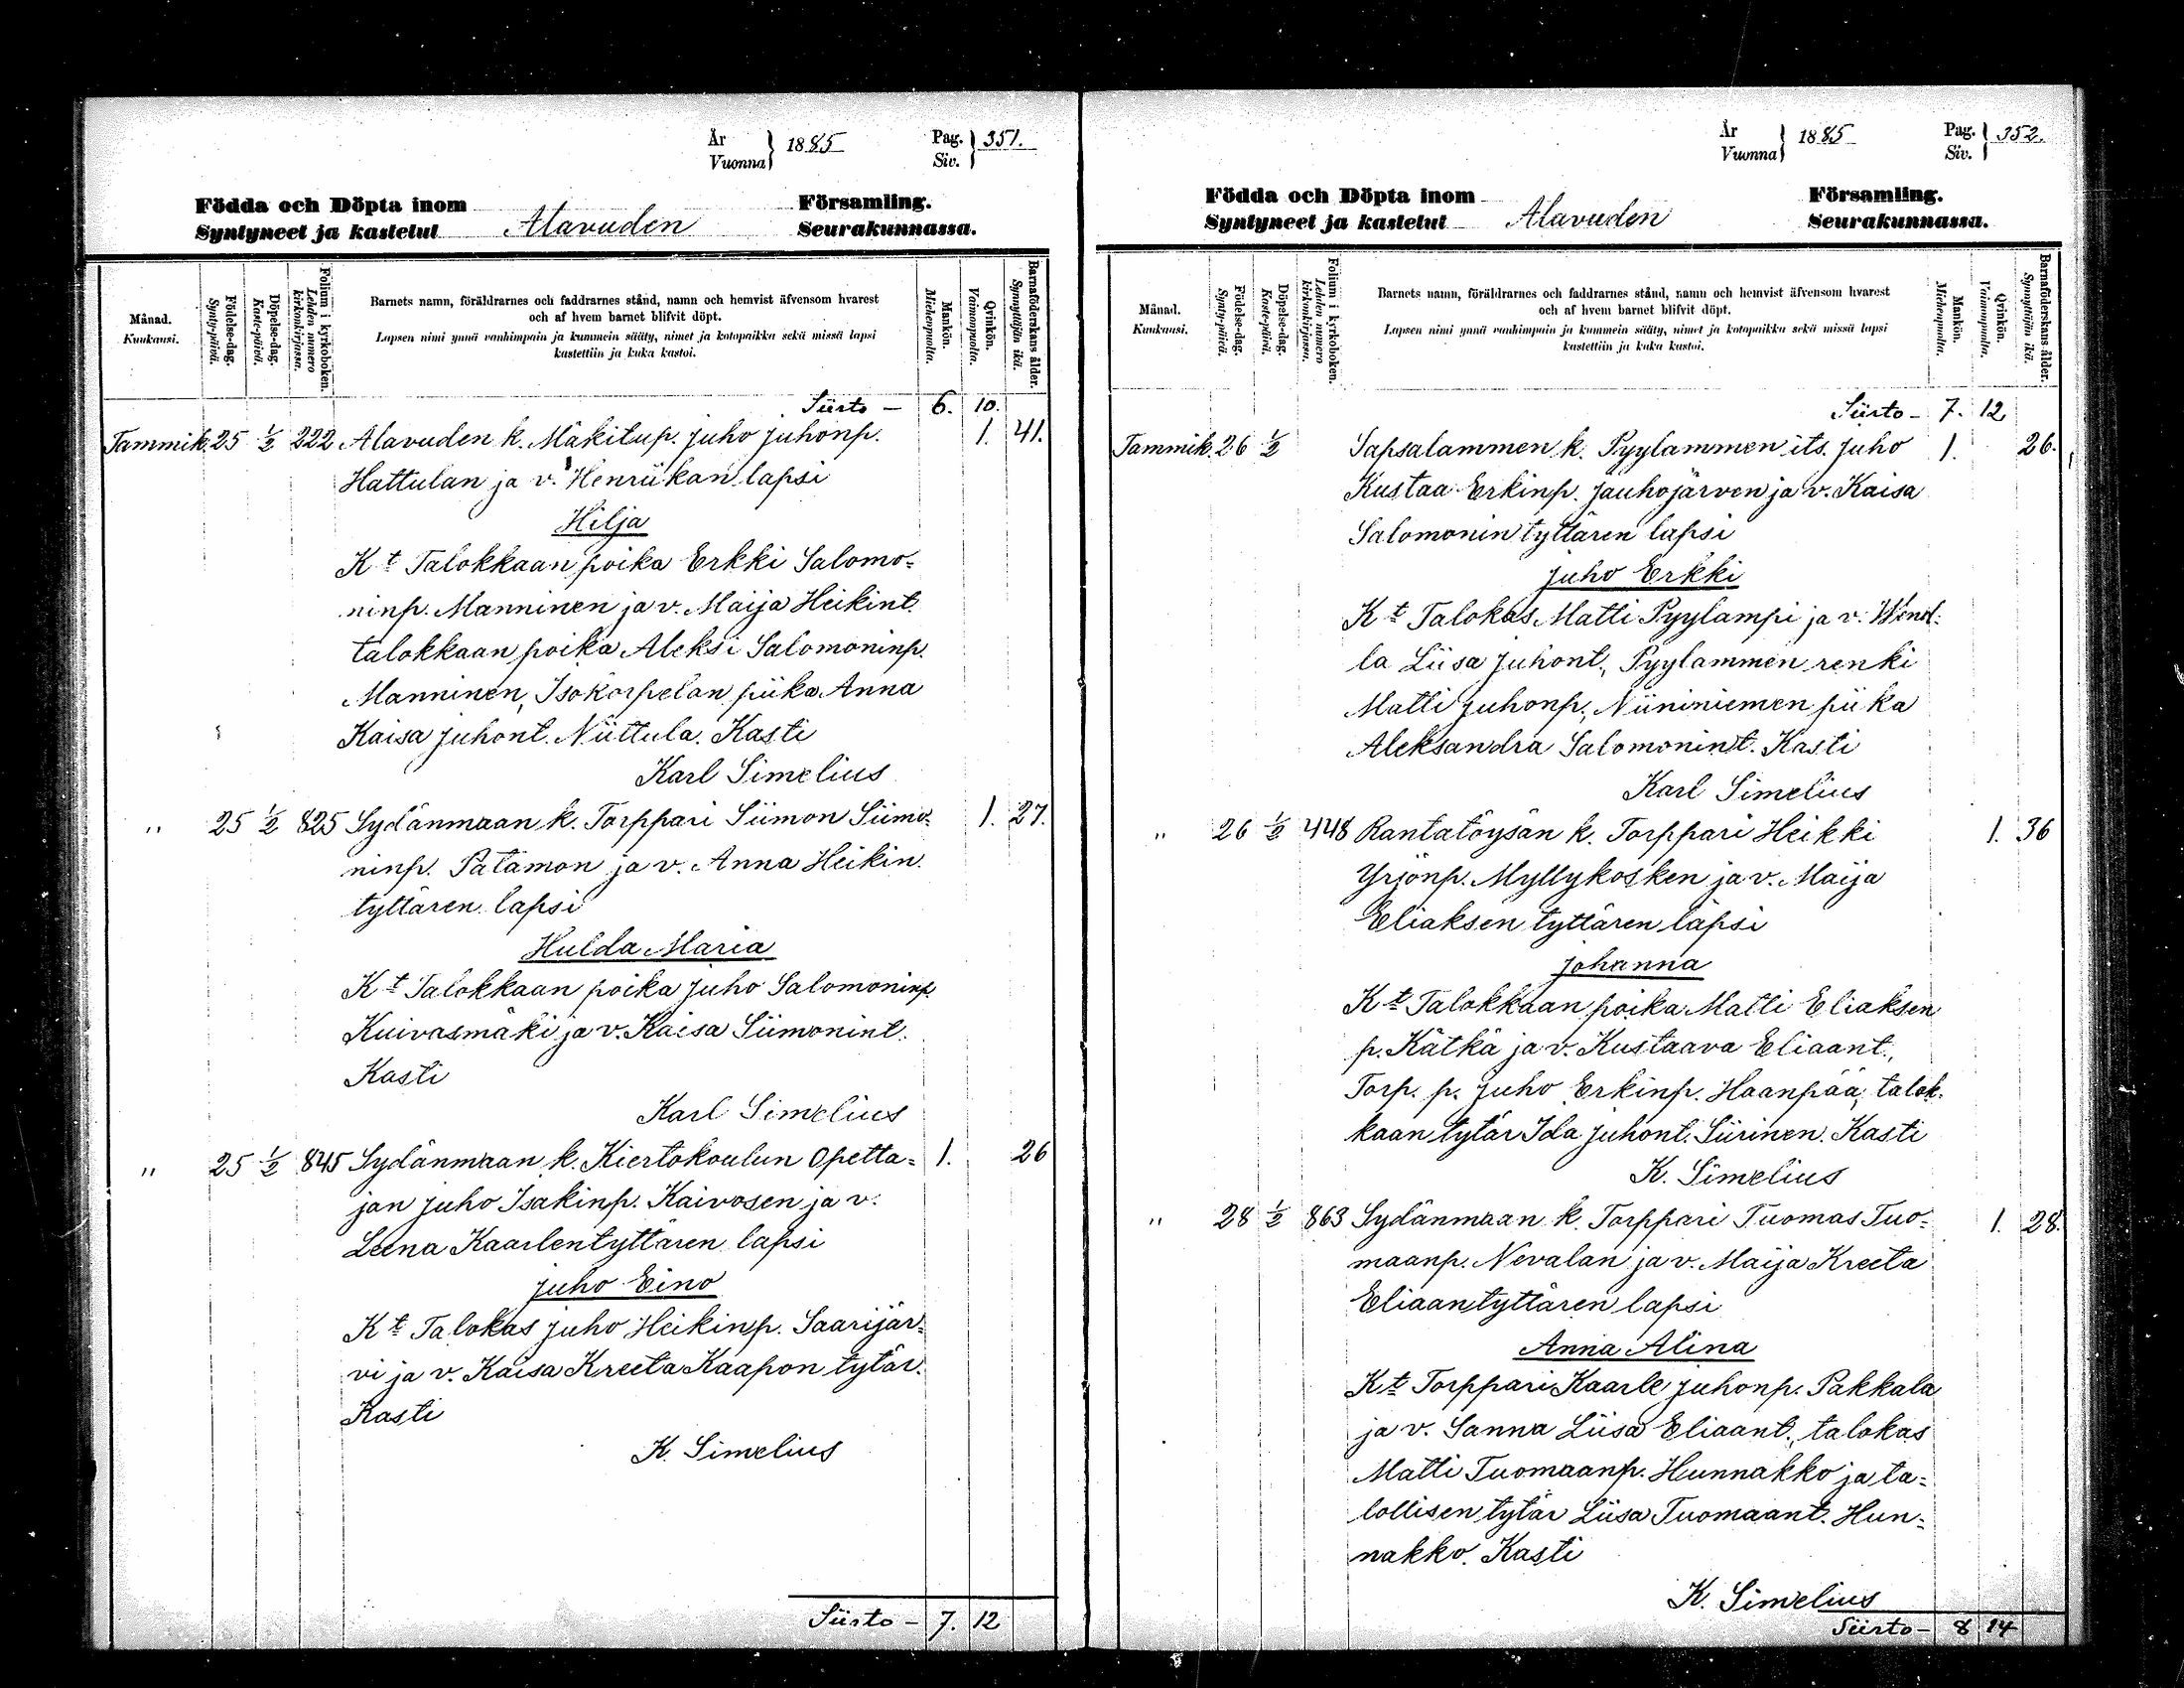 År
Vuonna } 1885 Pag.
Siv. } 351.
Födda och Döpta inom Församling.
Syntyneet ja kastetut Alavuden Seurakunnassa.
Månad.
Kuukausi.
Födelse-dag.
Synty-päivä.
Döpelse-dag.
Kaste-päivä.
Folium i kyrkoboken.
Lehden numero kirkonkirjassa.
Barnets namn, föräldrarnes och faddrarnes stånd, namn och hemvist äfvensom hvarest
och af hvem barnet blifvit döpt.
Lapsen nimi ynnä vanhimpain ja kummein sääty, nimet ja kotopaikka sekä missä lapsi
kastettiin ja kuka kastoi.
Mankön.
Miehenpuolta.
Qvinkön.
Vaimonpuolta.
Barnaföderskans ålder.
Synnyttäjän ikä.
Siirto — 6. 10.
Tammik. 25 1/2 222 Alavuden k. Mäkitup. Juho Juhonp. 1. 41.
Hattulan ja v. Henriikan lapsi
Hilja
Kt Talokkaan poika Erkki Salomo-
ninp. Manninen ja v. Maija Heikint.
talokkaan poika Aleksi Salomoninp.
Manninen, Isokorpelan piika Anna
Kaisa Juhont. Niittula. Kasti
Karl Simelius
" 25 1/2 825 Sydänmaan k. Torppari Siimon Siimo- 1. 27.
ninp. Patamon ja v. Anna Heikin
tyttären lapsi
Hulda Maria
Kt Talokkaan poika Juho Salomoninp.
Kuivasmäki ja v. Kaisa Siimonint.
Kasti
Karl Simelius
" 25 1/2 845 Sydänmaan k. Kiertokoulun Opetta- 1. 26
jan Juho Isakinp. Kaivosen ja v.
Leena Kaarlentyttären lapsi
Juho Eino
Kt Talokas Juho Heikinp. Saarijär-
vi ja v. Kaisa Kreeta Kaapon tytär.
Kasti
K. Simelius
Siirto — 7. 12
År
Vuonna } 1885 Pag.
Siv. } 352.
Födda och Döpta inom Församling.
Syntyneet ja kastetut Alavuden Seurakunnassa.
Månad.
Kuukausi.
Födelse-dag.
Synty-päivä.
Döpelse-dag.
Kaste-päivä.
Folium i kyrkoboken.
Lehden numero kirkonkirjassa.
Barnets namn, föräldrarnes och faddrarnes stånd, namn och hemvist äfvensom hvarest
och af hvem barnet blifvit döpt.
Lapsen nimi ynnä vanhimpain ja kummein sääty, nimet ja kotopaikka sekä missä lapsi
kastettiin ja kuka kastoi.
Mankön.
Miehenpuolta.
Qvinkön.
Vaimonpuolta.
Barnaföderskans ålder.
Synnyttäjän ikä.
Siirto — 7. 12
Tammik. 26 1/2 Sapsalammen k. Pyylammen its. Juho 1. 26.
Kustaa Erkinp. Jauhojärven ja v. Kaisa
Salomonin tyttären lapsi
Juho Erkki
Kt Talokas Matti Pyylampi ja v. Wend-
la Liisa Juhont., Pyylammen renki
Matti Juhonp., Niininiemen piika
Aleksandra Salomonint. Kasti
Karl Simelius
" 26 1/2 448 Rantatöysän k. Torppari Heikki 1. 36
Yrjönp. Myllykosken ja v. Maija
Eliaksen tyttären lapsi
Johanna
Kt Talokkaan poika Matti Eliaksen
p. Kätkä ja v. Kustaava Eliaant.,
Torp. p. Juho Erkinp. Haanpää, talok-
kaan tytär Ida Juhont. Siirinen. Kasti
K. Simelius
" 28 1/2 863 Sydänmaan k. Torppari Tuomas Tuo- 1. 28.
maanp. Nevalan ja v. Maija Kreeta
Eliaantyttären lapsi
Anna Alina
Kt Torppari Kaarle Juhonp. Pakkala
ja v. Sanna Liisa Eliaant., talokas
Matti Tuomaanp. Hunnakko ja ta-
lollisen tytär Liisa Tuomaant. Hun-
nakko. Kasti
K. Simelius
Siirto — 8 14